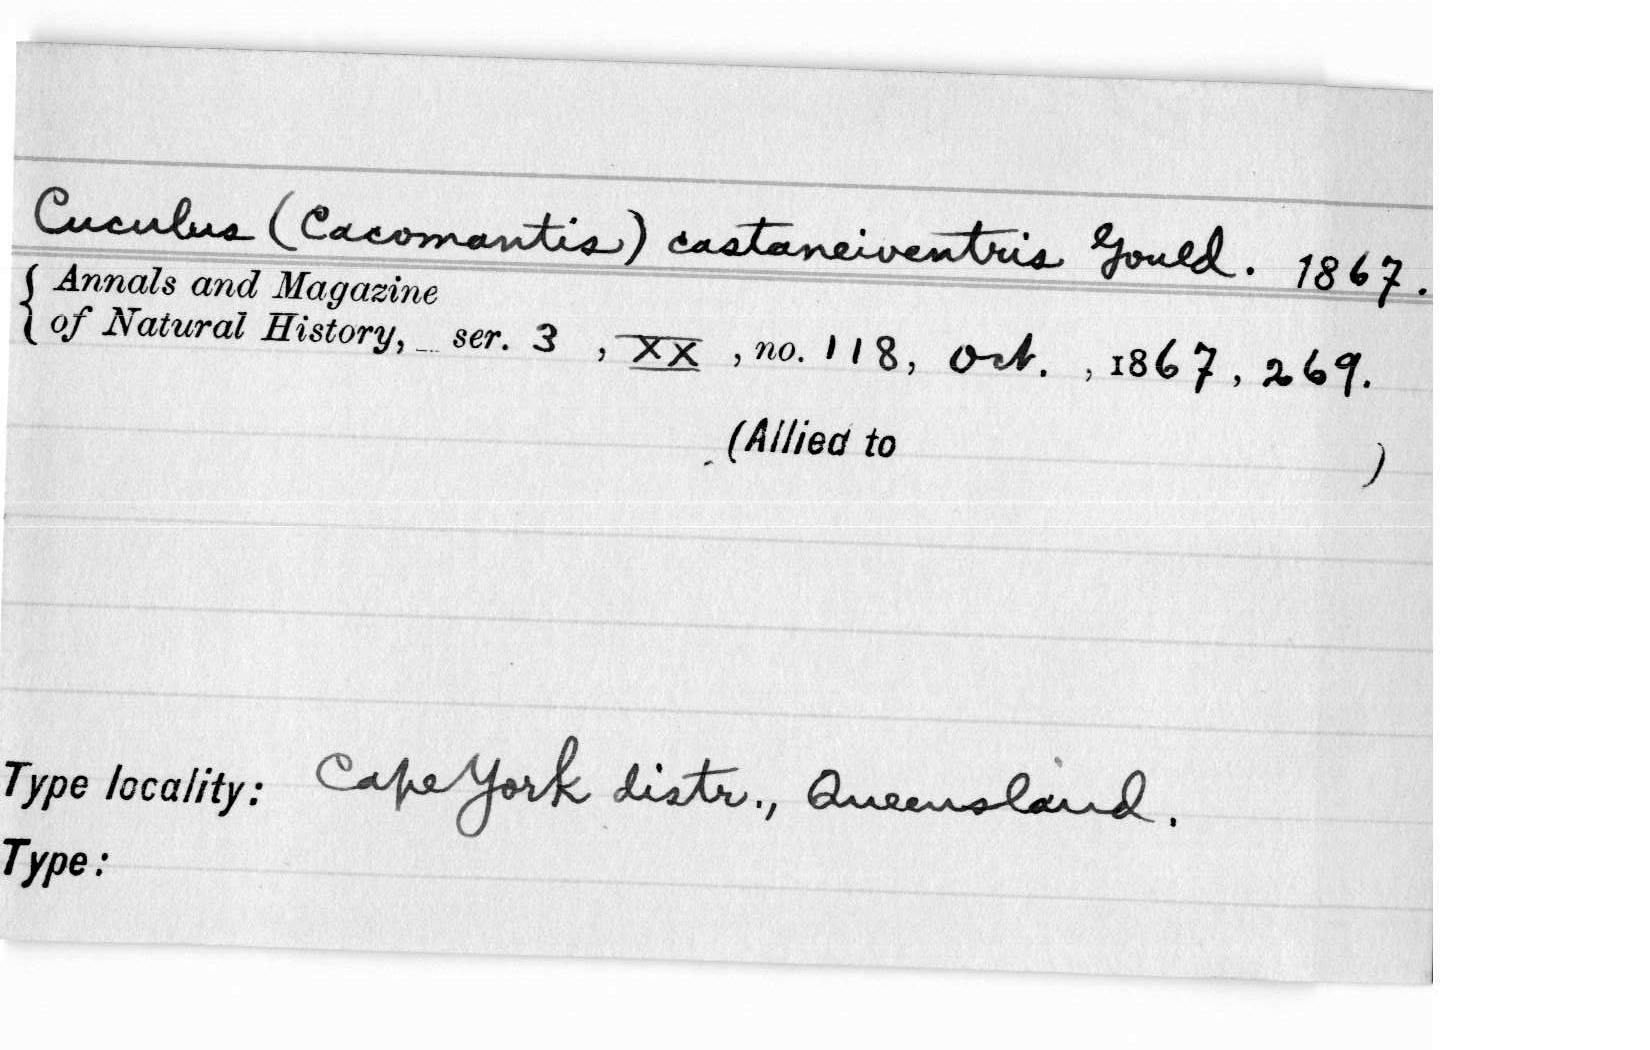 Cuculus (Cacomantis) castaneiventris Gould. 1867.
Annals and Magazine
of Natural History, ser. 3, XX, no. 118, Oct., 1867, 269.
(Allied to )
Type locality: Cape York distr., Queensland.
Type: